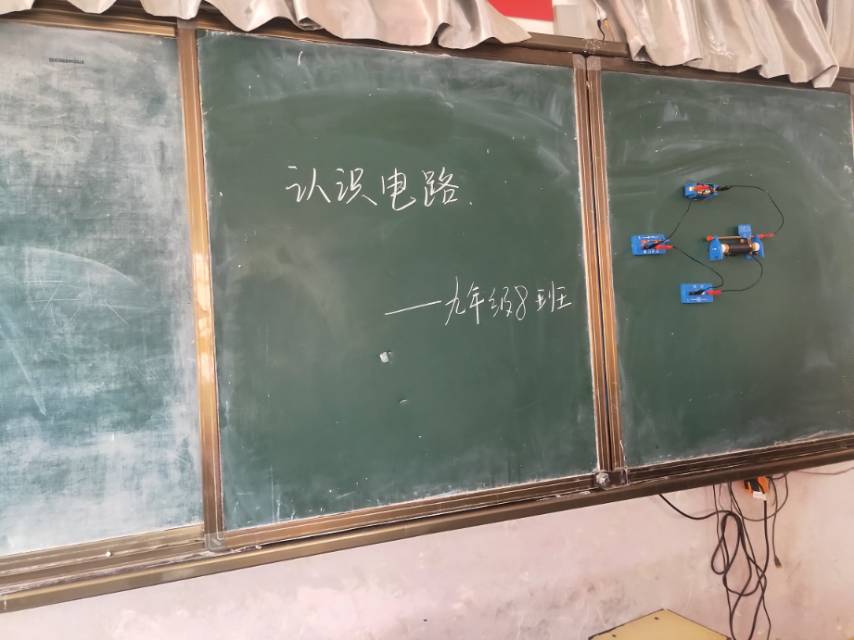 认识电路.
——九年级8班